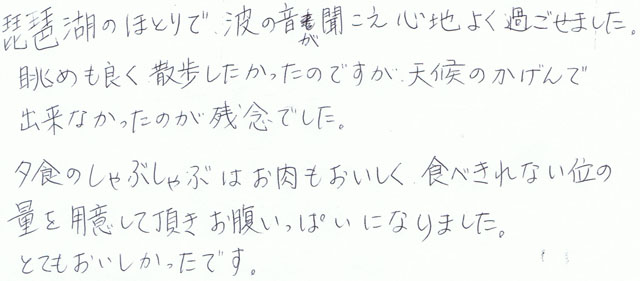 琵琶湖のほとりで、波の音が聞こえ心地よく過ごせました。
眺めも良く散歩したかったのですが、天候のかげんで
出来なかったのが残念でした。
夕食のしゃぶしゃぶはお肉もおいしく、食べきれない位の
量を用意して頂きお腹いっぱいになりました。
とてもおいしかったです。